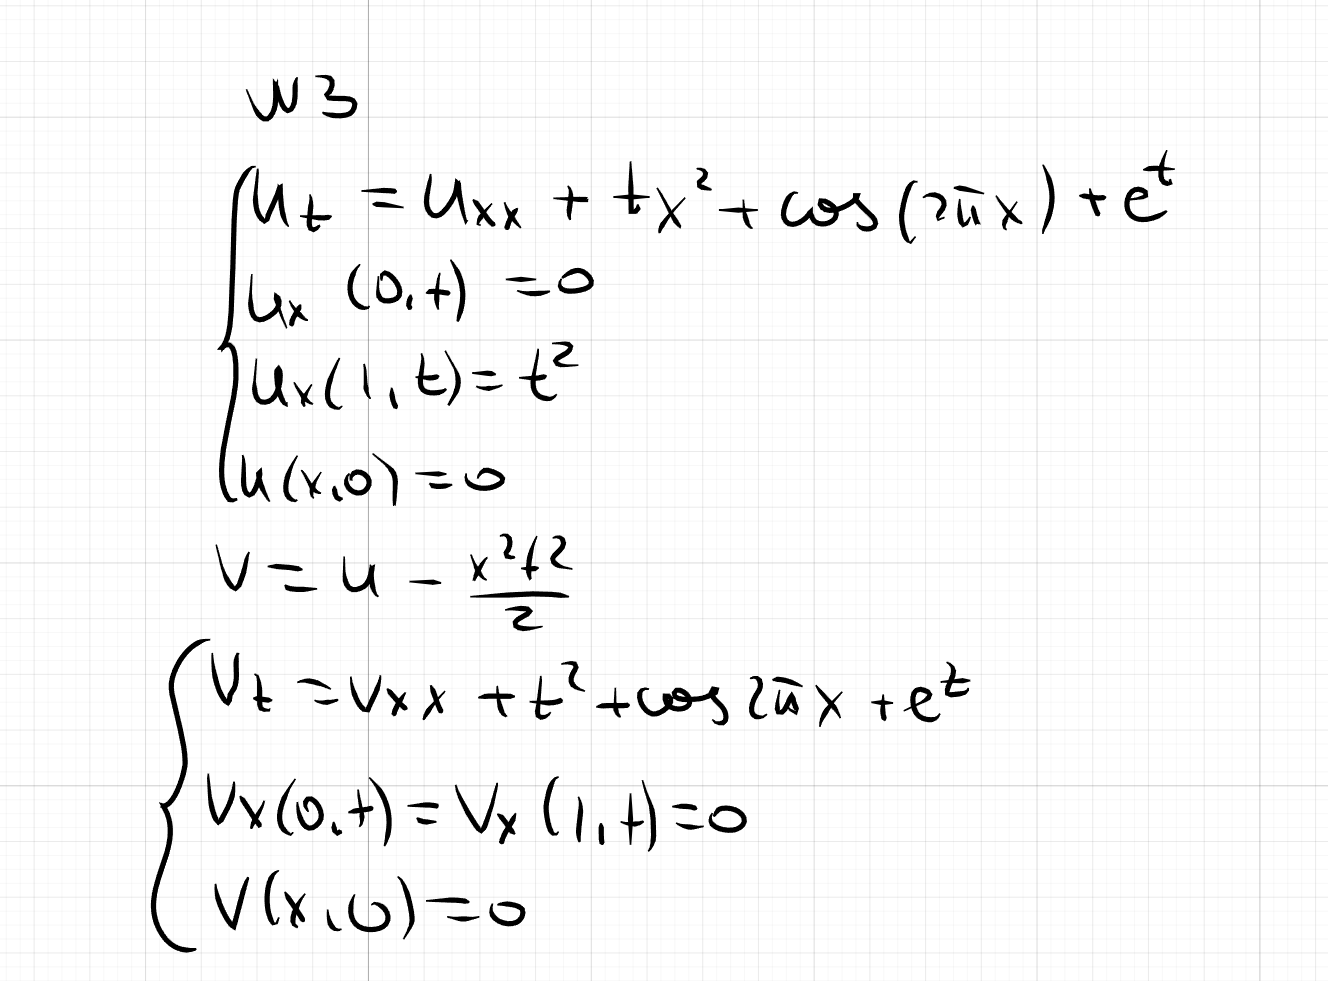 N3
u_t = u_xx + tx² + cos(2πx) + e^t
u_x (0,t) = 0
u_x(1,t) = t²
u(x,0) = 0
V = u - x²t²/2
V_t = V_xx + t² + cos2πx + e^t
V_x(0,t) = V_x(1,t) = 0
V(x,0) = 0